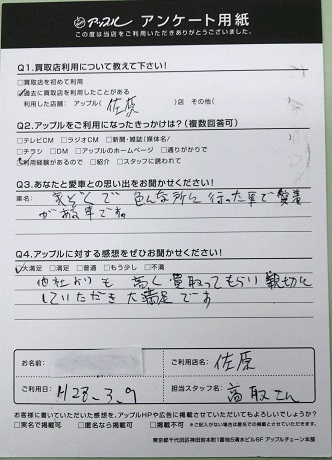 アップル アンケート用紙
この度は当店をご利用いただきありがとうございました。
Q1.買取店利用について教えて下さい!
□買取店を初めて利用
□過去に買取店を利用したことがある
利用した店舗: アップル( 佐原 )店 その他( )
Q2.アップルをご利用になったきっかけは?(複数回答可)
□テレビCM □ラジオCM □新聞・雑誌(媒体名/ )
□チラシ □DM □アップルのホームページ □通りがかりで
□利用経験があるので □紹介 □スタッフに誘われて
Q3.あなたと愛車との思い出をお聞かせください!
車名:
家ぞくで 色んな所に行った車で愛着
がある車です。
Q4.アップルに対する感想をぜひお聞かせください!
□大満足 □満足 □普通 □もう少し □不満
他社よりも 高く買取ってもらい親切に
していただき大満足です
お名前:
ご利用店名: 佐原
ご利用日: H28.3.9
担当スタッフ名: 高取さん
お客様に書いていただいた感想を、アップルHPや広告に掲載させていただいてもよろしいでしょうか?
□実名で掲載可 □匿名なら掲載可 □掲載不可 ※ご記入がない場合は匿名での掲載とさせていただきます。
東京都千代田区神田岩本町1番地5清水ビル6F アップルチェーン本部